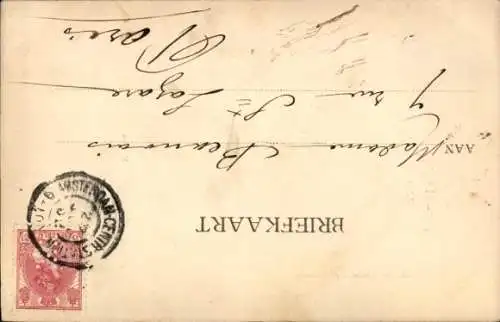 BRIEFKAART
AAN Madame Beauvais
7 rue St Lazare
Paris
AMSTERDAM-CENTR:STATION